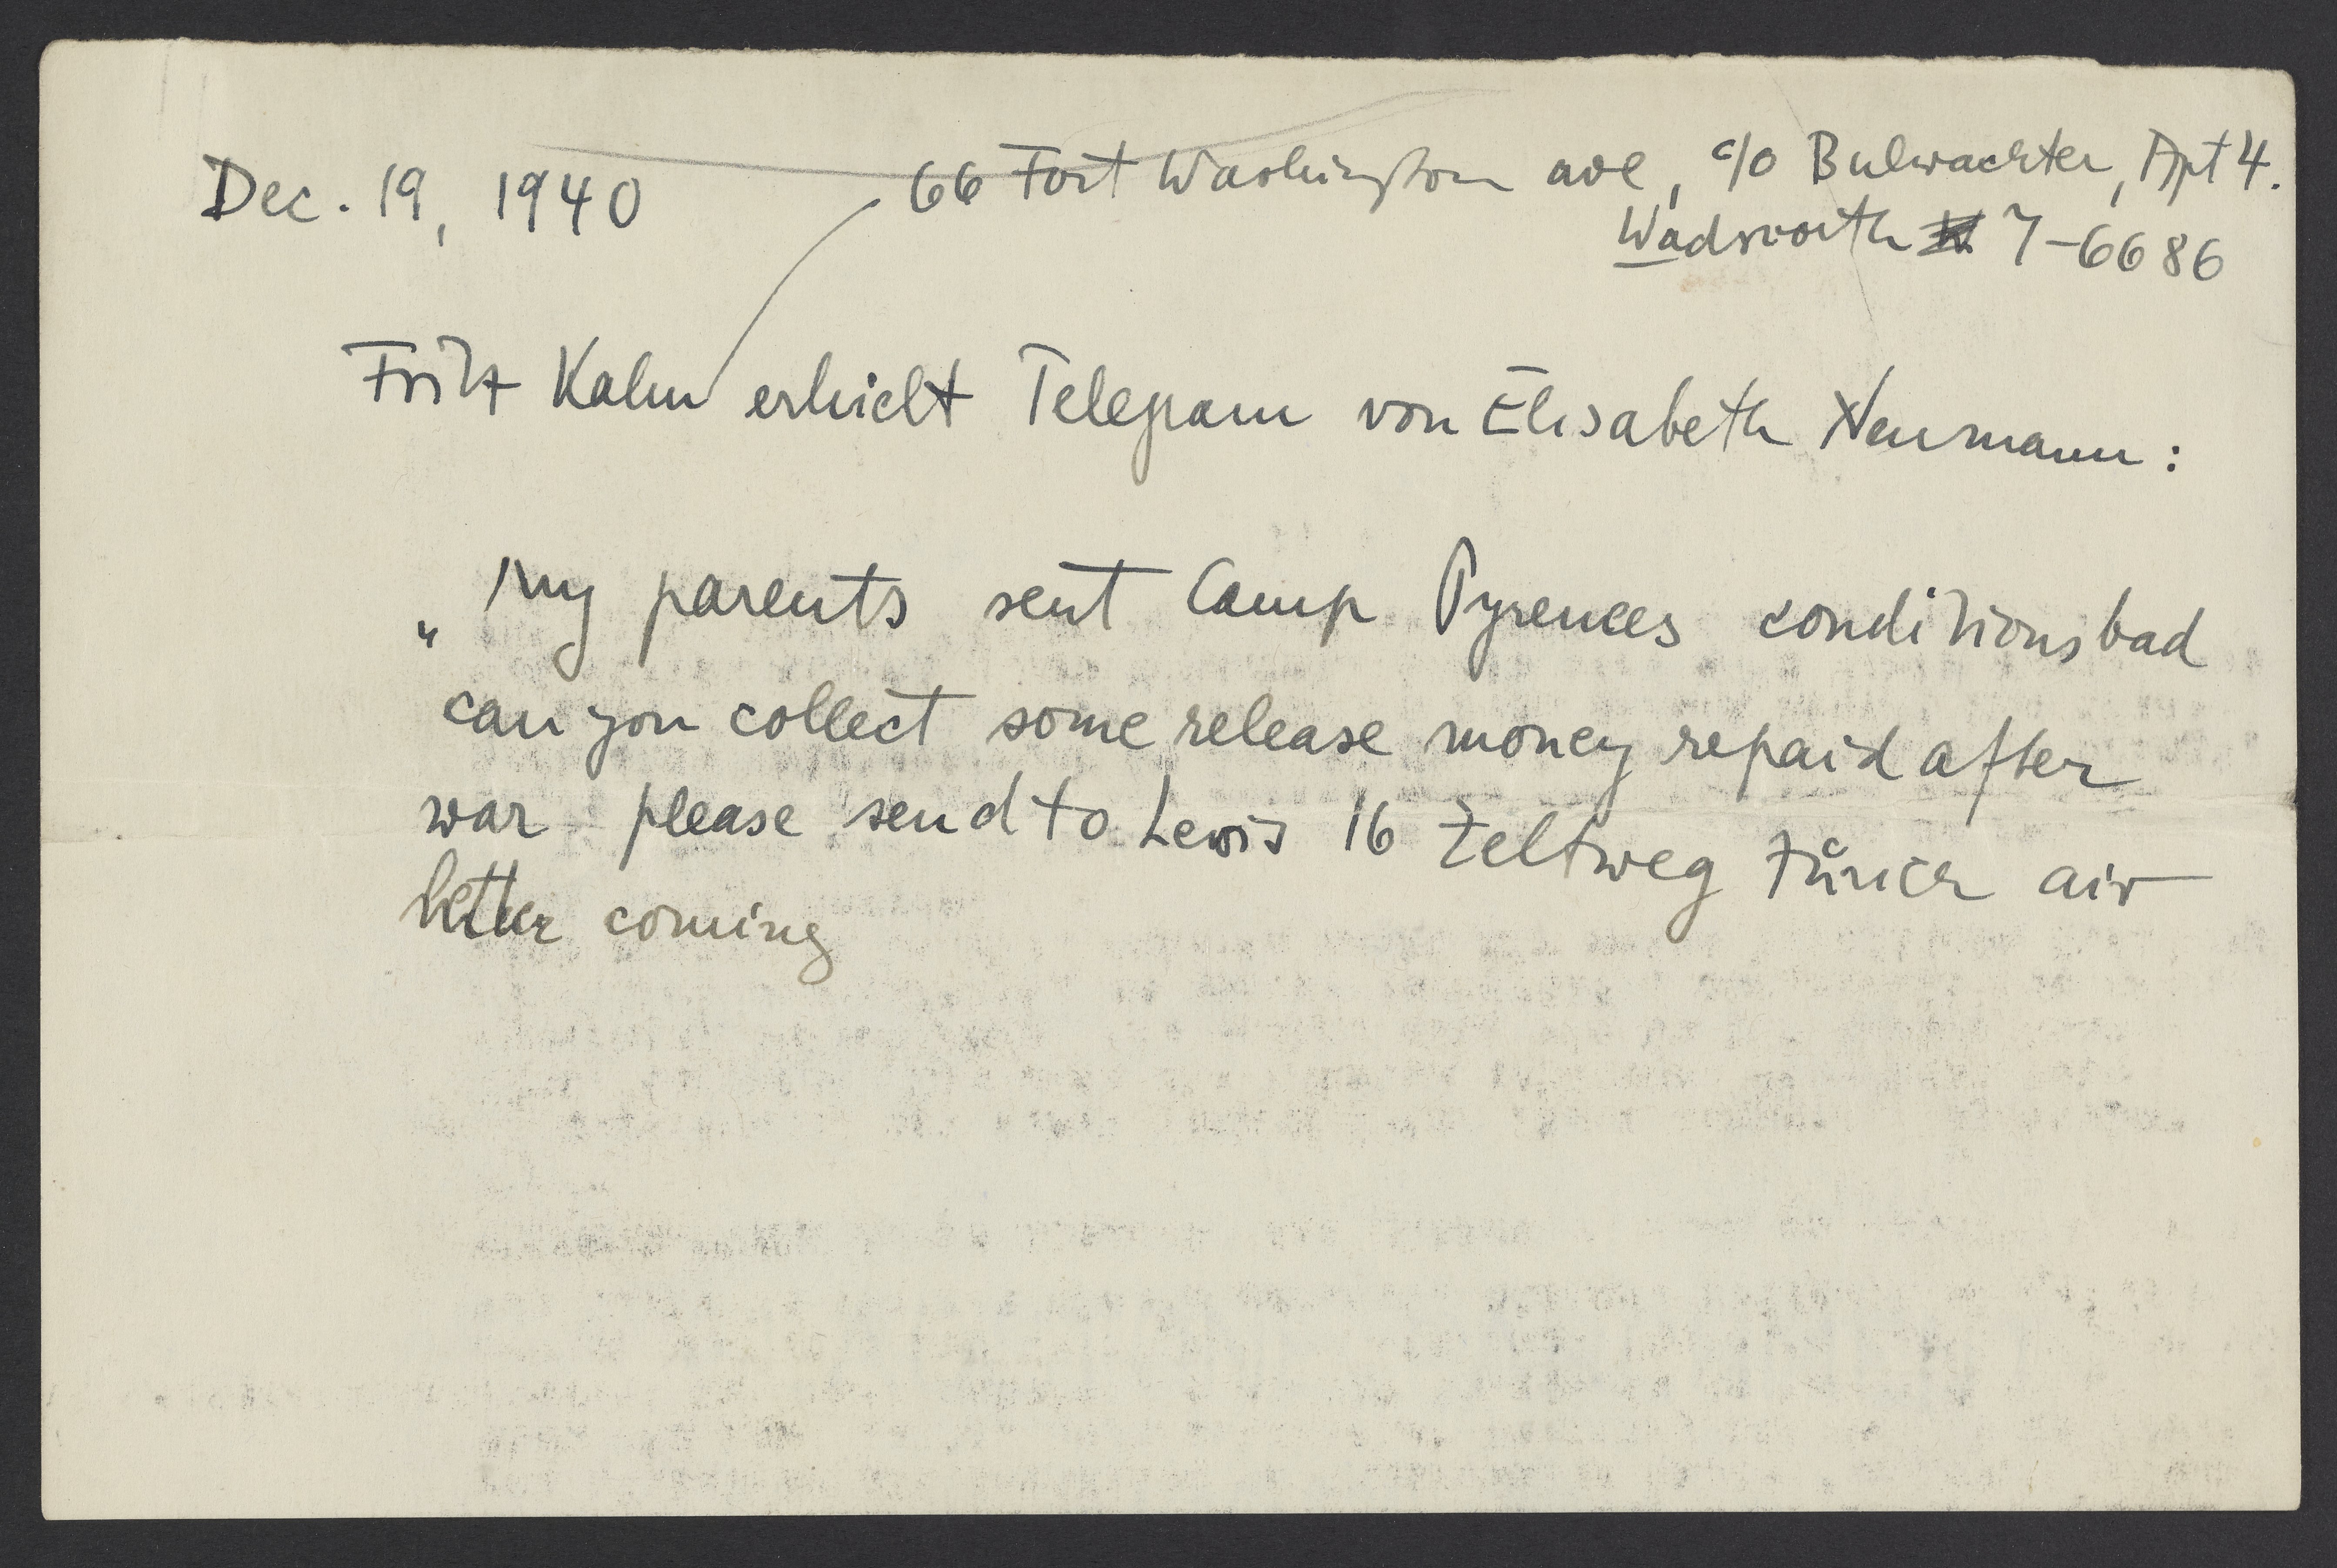 Dec. 19, 1940 66 Fort Washington ave, c/o Bulwachter, Apt 4.
Wadsworth 7-6686
Fritz Kahn erhielt Telegram von Elisabeth Neumann:
„ My parents sent Camp Pyrenees conditions bad
can you collect some release money repaid after
war please send to Lewis 16 Zeltweg Zürich air
letter coming